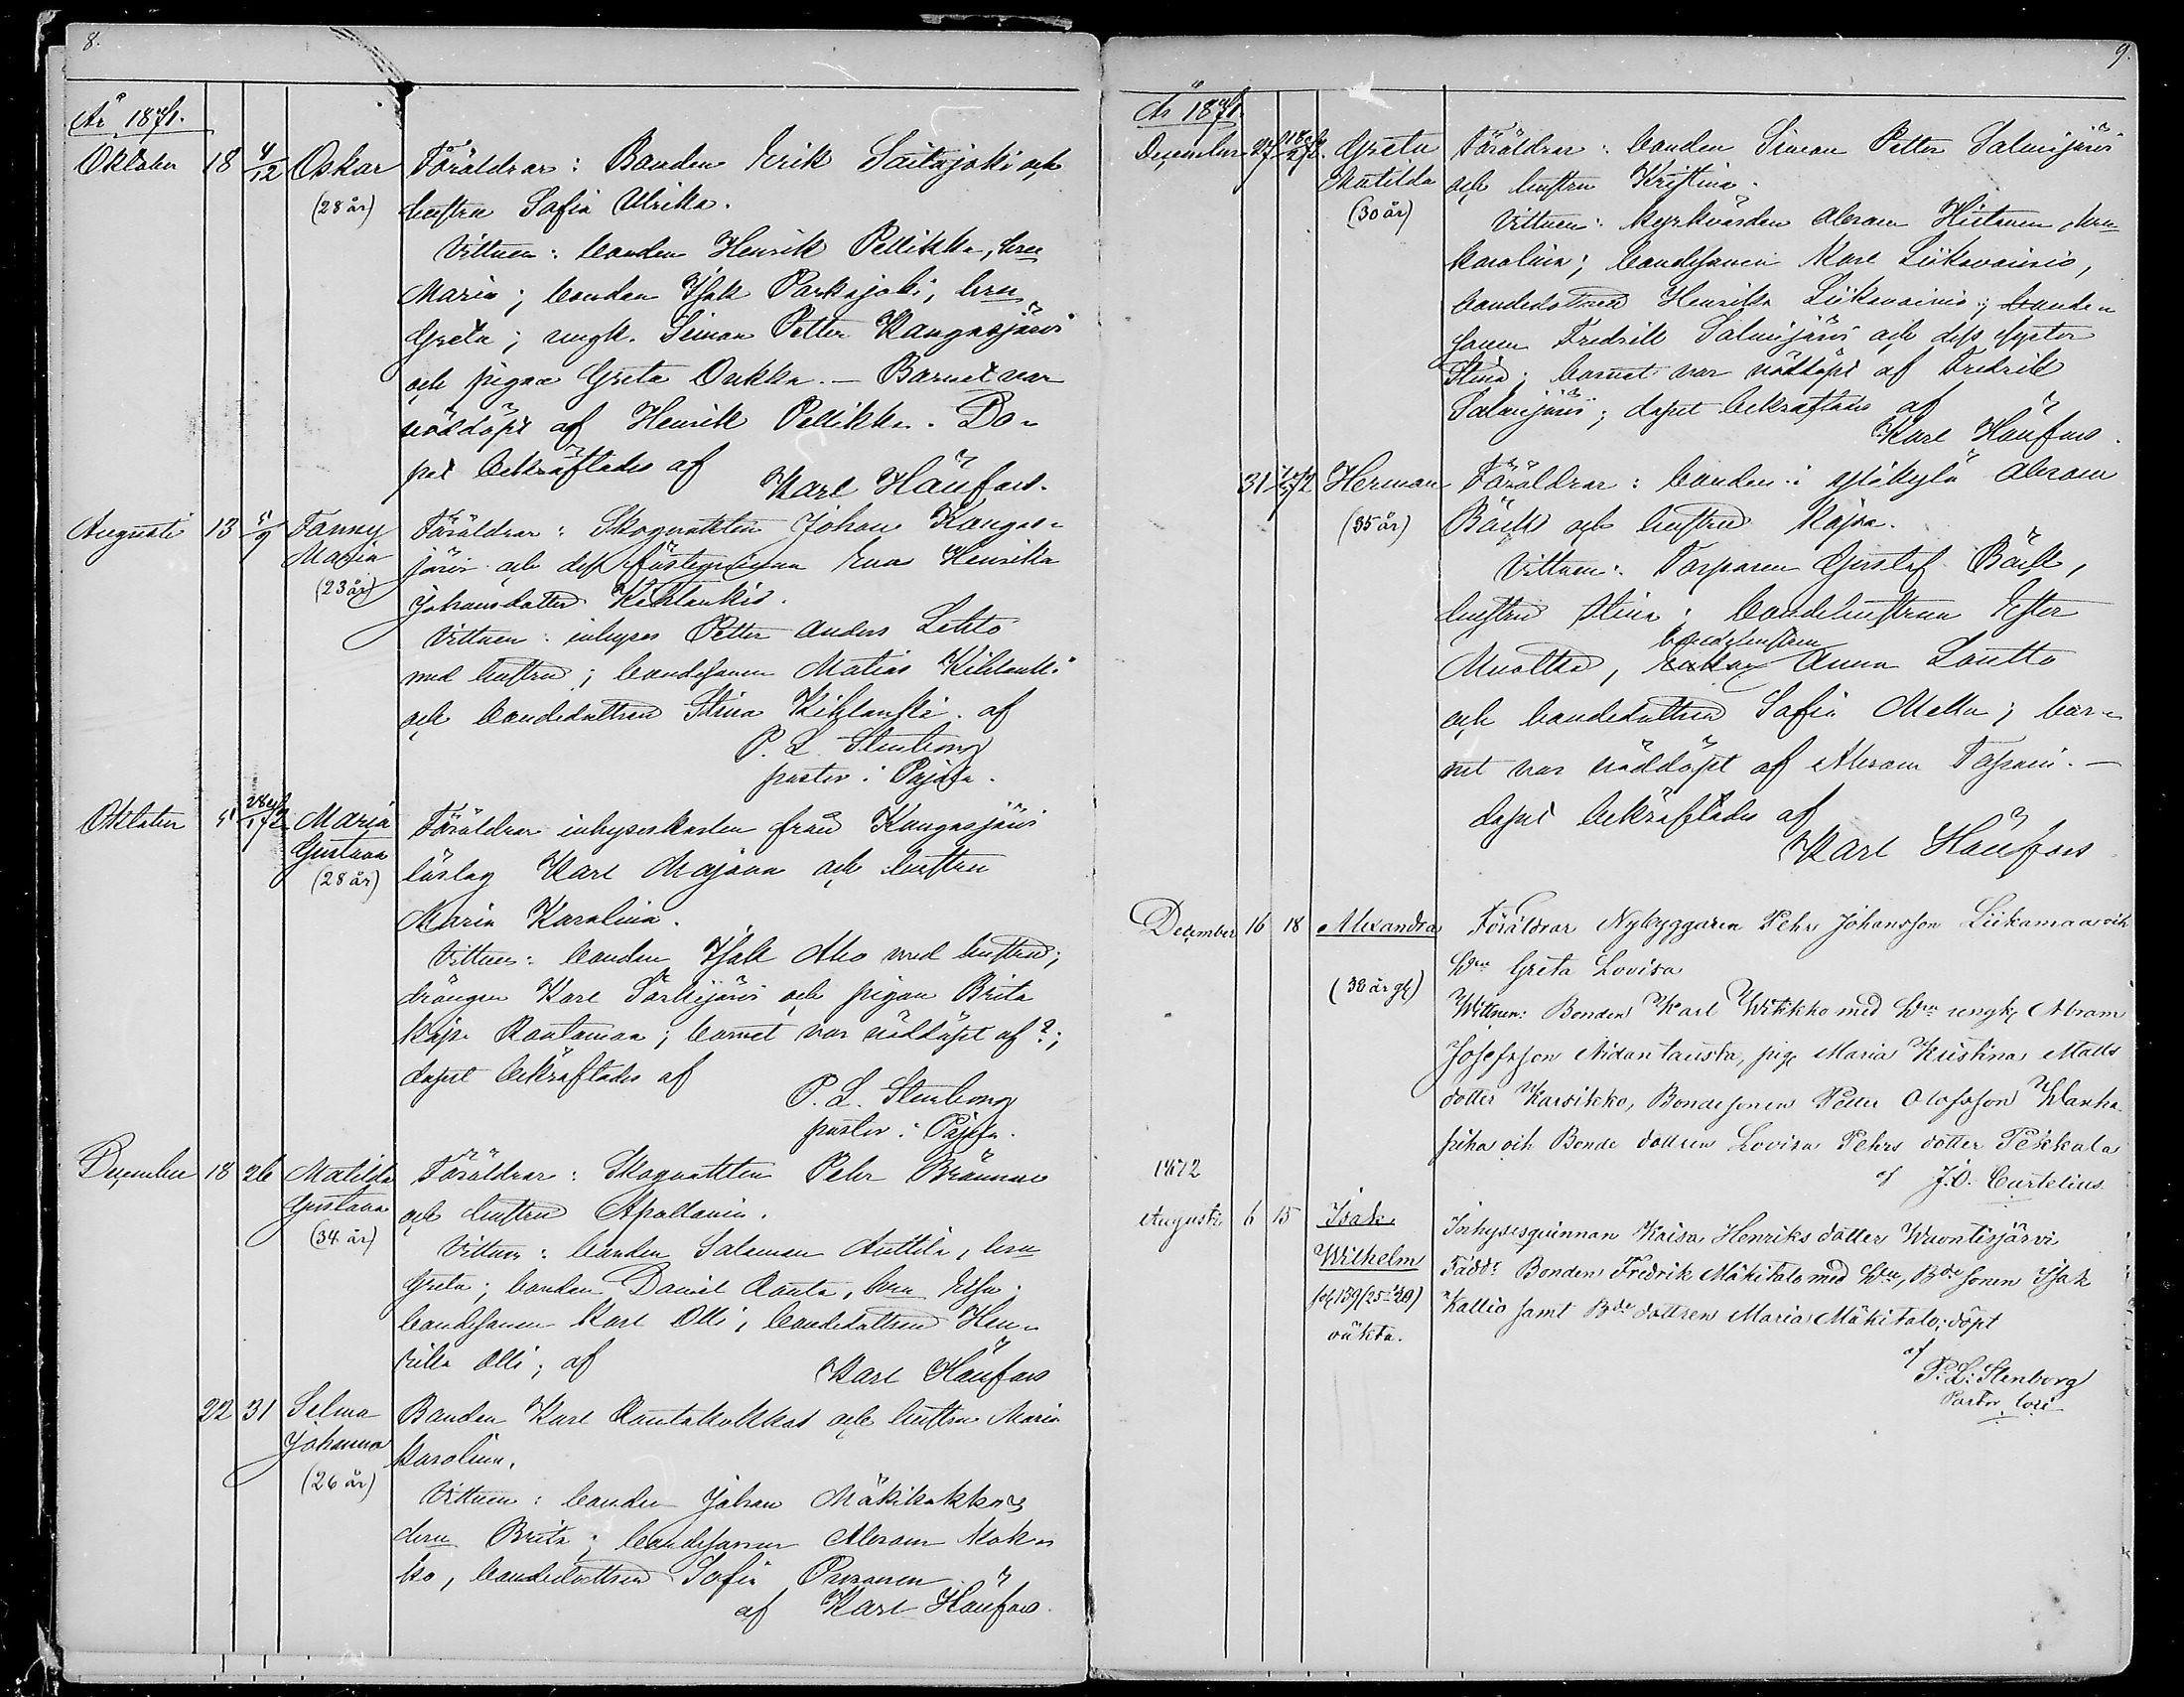 8.
År 1871.
Oktober 18 4/12 Oskar Föräldrar: Bonden Erik Saitajoki och
(28 år) hustru Sofia Ulrika.
Vittnen: bonden Henrik Pellikka, hru
Maria; bonden Isak Parkajoki, hru
Greta; ungk. Simon Petter Kangasjärvi
och pigan Greta Onkka. — Barnet var
nöddöpt af Henrik Pellikka. Do-
pet bekräftades af
Karl Hänfors.
Augusti 13 Fanny Föräldrar: Skogvakten Johan Kangas-
Maria järvi och dess fästeqvinna Eva Henrika
(23 år) Johansdotter Kihlankis.
Vittnen: inhyses Petter Anders Lehto
med hustru; bondesonen Matias Kihlanki
och bondedottren Stina Kihlanki. af
P. L. Stenborg
pastor i Pajala.
Oktober 5 28/1 72 Maria Föräldrar inhyseskarlen från Kangasjärvi
Gustava
(28 år) Karl Majava och hustru
Maria Karolina.
Vittnen: bonden Isak Aho med hustru;
drängen Karl Särkijärvi och pigan Brita
Kajsa Rautamaa; barnet var nöddöpt af ?;
dopet bekräftades af
P. L. Stenborg
pastor i Pajala.
December 18 26 Matilda Föräldrar: Skogvakten Pehr Brännare
Gustava och hustru Apollonia.
(34 år)
Vittnen: bonden Salomon Anttila, hru
Greta; bonden Daniel Ranta, hru Elsa;
bondesonen Karl Olli, bondedottren Hen-
rika Olli; af
Karl Hänfors
22 31 Selma Bonden Karl Rantakokkos och hustru Maria
Johanna Karolina.
(26 år)
Vittnen: bonden Johan Mäkikokkos
hru Brita; bondesonen Abram Kok-
ko, bondedottren Sofia
af Karl Hänfors.
9.
År 1871.
December 27 Greta Föräldrar: bonden Simon Petter Salmijärvi
Matilda och hustru Kristina.
(30 år) Vittnen: kyrkvärden Abram Hietanen, hru
Karolina; bondesonen Karl Liikavainio,
bondedottren Henrika Liikavainio; bonde-
sonen Fredrik Salmijärvi och dess syster
Stina; barnet var nöddöpt af Fredrik
Salmijärvi; dopet bekräftades af
Karl Hänfors.
31 Herman Föräldrar: bonden i Abram
(35 år) Bäck och hustru Kajsa.
Vittnen: Torparen Gustaf Bäck,
hustru Stina; bondehustrun Ester
bondehustrun
Muotka, Anna Lautto
och bondedottren Sofia Mella; bar-
net var nöddöpt af Abram Tapani. —
dopet bekräftades af
Karl Hänfors
December 16 18 Alexandra Föräldrar Nybyggaren Pehr Johansson Liikamaa och
Hru Greta Lovisa
(38 år gl)
Wittnen: Bonden Karl Wikkko med Hru ungk. Abram
Josefsson Aidantausta, pig. Maria Kristina Matts
dotter Karsikko, Bondesonen Petter Olofsson Wanha-
piha och Bonde dottren Lovisa Pehrs dotter Pekkala
af J. O. Curtelius
1872
Augusti 6 15 Isak Inhysesqvinnan Kaisa Henriks dotter Wuontisjärvi
Wilhelm Faddr Bonden Fredrik Mäkitalo med Hru, Bde sonen Isak
fol 159 (25-30) Kallio samt Bde dottren Maria Mäkitalo; döpt
oäkta. af
P. L. Stenborg
Pastor loci